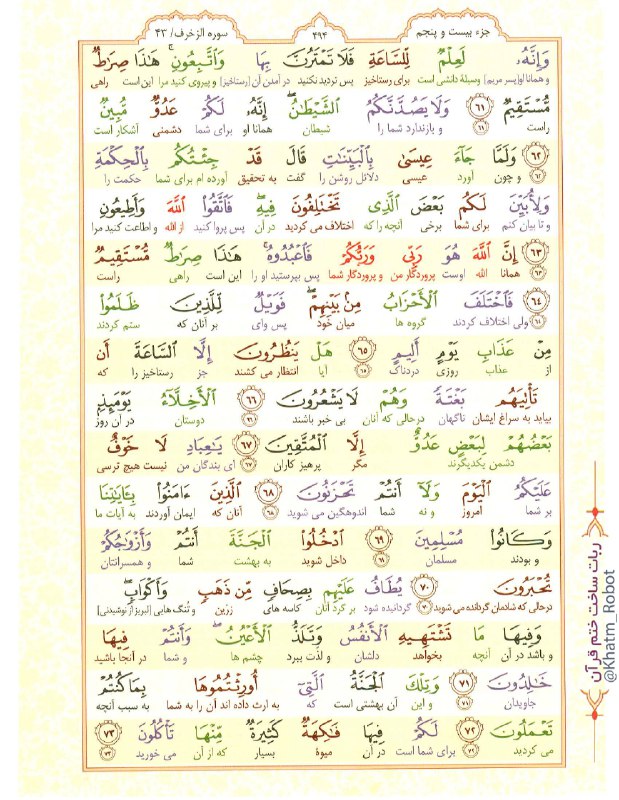 جزء بیست و پنجم
۴۹۴
سوره الزخرف/ ۴۳
وَإِنَّهُۥ لَعِلۡمٞ لِّلسَّاعَةِ فَلَا تَمۡتَرُنَّ بِهَا وَٱتَّبِعُونِۚ هَٰذَا صِرَٰطٞ
و همانا او[پسر مریم] وسیلهٔ دانشی است برای رستاخیز پس تردید نکنید در آمدن آن [رستاخیز] و پیروی کنید مرا این است راهی
مُّسۡتَقِيمٞ ۶۱ وَلَا يَصُدَّنَّكُمُ ٱلشَّيۡطَٰنُۖ إِنَّهُۥ لَكُمۡ عَدُوّٞ مُّبِينٞ
راست ۶۱ و بازندارد شما را شیطان همانا او برای شما دشمنی آشکار است
۶۲ وَلَمَّا جَآءَ عِيسَىٰ بِٱلۡبَيِّنَٰتِ قَالَ قَدۡ جِئۡتُكُم بِٱلۡحِكۡمَةِ
۶۲ و چون آورد عیسی دلائل روشن را گفت به تحقیق آورده ام برای شما حکمت را
وَلِأُبَيِّنَ لَكُم بَعۡضَ ٱلَّذِي تَخۡتَلِفُونَ فِيهِۖ فَٱتَّقُواْ ٱللَّهَ وَأَطِيعُونِ
و تا بیان کنم برای شما برخی آنچه را که اختلاف می کردید در آن پس پروا کنید از الله و اطاعت کنید مرا
۶۳ إِنَّ ٱللَّهَ هُوَ رَبِّي وَرَبُّكُمۡ فَٱعۡبُدُوهُۚ هَٰذَا صِرَٰطٞ مُّسۡتَقِيمٞ
۶۳ همانا الله اوست پروردگار من و پروردگار شما پس بپرستید او را این است راهی راست
۶۴ فَٱخۡتَلَفَ ٱلۡأَحۡزَابُ مِنۢ بَيۡنِهِمۡۖ فَوَيۡلٞ لِّلَّذِينَ ظَلَمُواْ
۶۴ ولی اختلاف کردند گروه ها میان خود پس وای بر آنان که ستم کردند
مِنۡ عَذَابِ يَوۡمٍ أَلِيمٍ ۶۵ هَلۡ يَنظُرُونَ إِلَّا ٱلسَّاعَةَ أَن
از عذاب روزی دردناک ۶۵ آیا انتظار می کشند جز رستاخیز را که
تَأۡتِيَهُم بَغۡتَةٗ وَهُمۡ لَا يَشۡعُرُونَ ۶۶ ٱلۡأَخِلَّآءُ يَوۡمَئِذِۭ
بیاید به سراغ ایشان ناگهان درحالی که آنان بی خبر باشند ۶۶ دوستان در آن روز
بَعۡضُهُمۡ لِبَعۡضٍ عَدُوٌّ إِلَّا ٱلۡمُتَّقِينَ ۶۷ يَٰعِبَادِ لَا خَوۡفٌ
دشمن یکدیگرند مگر پرهیز کاران ۶۷ ای بندگان من نیست هیچ ترسی
عَلَيۡكُمُ ٱلۡيَوۡمَ وَلَآ أَنتُمۡ تَحۡزَنُونَ ۶۸ ٱلَّذِينَ ءَامَنُواْ بِـَٔايَٰتِنَا
بر شما امروز و نه شما اندوهگین می شوید ۶۸ آنان که ایمان آوردند به آیات ما
وَكَانُواْ مُسۡلِمِينَ ۶۹ ٱدۡخُلُواْ ٱلۡجَنَّةَ أَنتُمۡ وَأَزۡوَٰجُكُمۡ
و بودند مسلمان ۶۹ داخل شوید به بهشت شما و همسرانتان
تُحۡبَرُونَ ۷۰ يُطَافُ عَلَيۡهِم بِصِحَافٖ مِّن ذَهَبٖ وَأَكۡوَابٖۖ
درحالی که شادمان گردانده می شوید ۷۰ گردانیده شود بر گرد آنان کاسه های زرین و تُنگ هایی [لبریز از نوشیدنی]
وَفِيهَا مَا تَشۡتَهِيهِ ٱلۡأَنفُسُ وَتَلَذُّ ٱلۡأَعۡيُنُۖ وَأَنتُمۡ فِيهَا
و باشد در آن آنچه بخواهد دلشان و لذت ببرد چشم ها و شما در آنجا باشید
خَٰلِدُونَ ۷۱ وَتِلۡكَ ٱلۡجَنَّةُ ٱلَّتِيٓ أُورِثۡتُمُوهَا بِمَا كُنتُمۡ
جاویدان ۷۱ و این آن بهشتی است که به ارث داده اند آن را به شما به سبب آنچه
تَعۡمَلُونَ ۷۲ لَكُمۡ فِيهَا فَٰكِهَةٞ كَثِيرَةٞ مِّنۡهَا تَأۡكُلُونَ ۷۳
می کردید ۷۲ برای شما است در آن میوهٔ بسیار که از آن می خورید ۷۳
ربات ساخت ختم قرآن
@Khatm_Robot